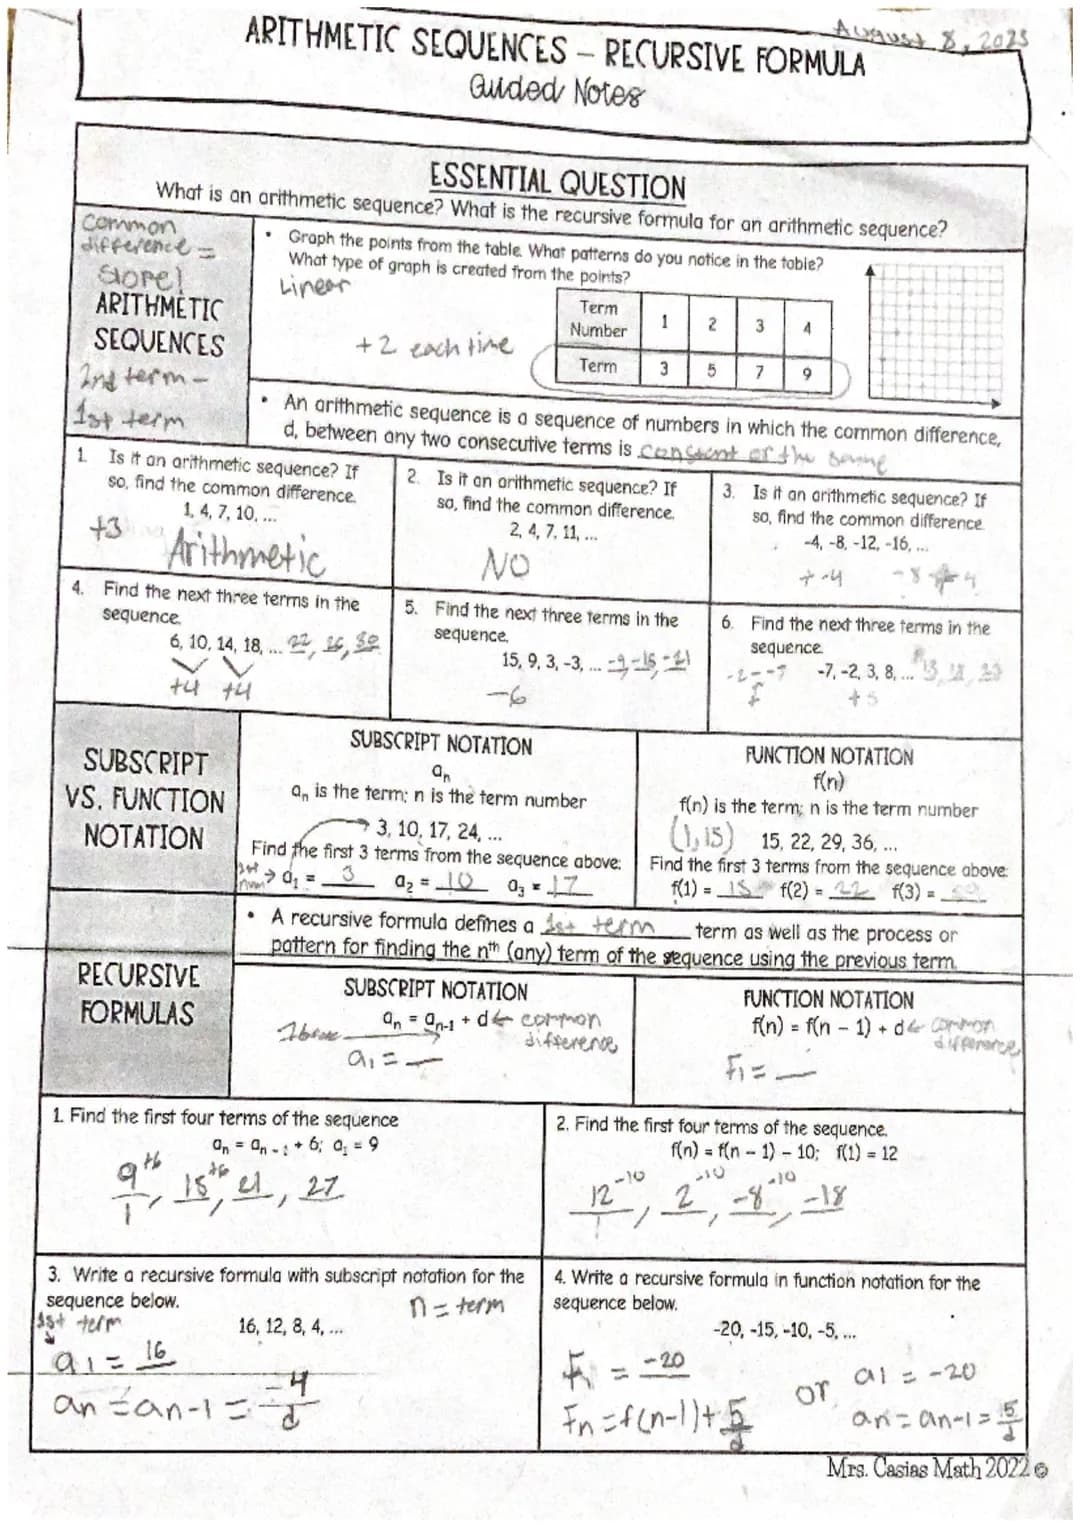 August 8, 2023
ARITHMETIC SEQUENCES – RECURSIVE FORMULA
Guided Notes
ESSENTIAL QUESTION
What is an arithmetic sequence? What is the recursive formula for an arithmetic sequence?
Common
difference =
Slope!
ARITHMETIC
SEQUENCES
2nd term -
1st term
• Graph the points from the table. What patterns do you notice in the table?
What type of graph is created from the points?
Linear
+2 each time
Term Number 1 2 3 4
Term 3 5 7 9
• An arithmetic sequence is a sequence of numbers in which the common difference,
d, between any two consecutive terms is constant or the same
1. Is it an arithmetic sequence? If
so, find the common difference.
1, 4, 7, 10, ...
+3
Arithmetic
2. Is it an arithmetic sequence? If
so, find the common difference.
2, 4, 7, 11, ...
NO
3. Is it an arithmetic sequence? If
so, find the common difference.
-4, -8, -12, -16, ...
+ -4
4. Find the next three terms in the
sequence.
6, 10, 14, 18, ... 22, 26, 30
+4 +4
5. Find the next three terms in the
sequence.
15, 9, 3, -3, ... -9, -15, -21
-6
6. Find the next three terms in the
sequence.
-7, -2, 3, 8, ... 13, 18, 23
-2 - -7
+5
SUBSCRIPT
VS. FUNCTION
NOTATION
SUBSCRIPT NOTATION
aₙ
aₙ is the term; n is the term number
3, 10, 17, 24, ...
Find the first 3 terms from the sequence above:
a₁ = 3 a₂ = 10 a₃ = 17
FUNCTION NOTATION
f(n)
f(n) is the term; n is the term number
(1,15) 15, 22, 29, 36, ...
Find the first 3 terms from the sequence above:
f(1) = 15 f(2) = 22 f(3) =
• A recursive formula defines a 1st term term as well as the process or
pattern for finding the nᵗʰ (any) term of the sequence using the previous term.
RECURSIVE
FORMULAS
SUBSCRIPT NOTATION
aₙ = aₙ₋₁ + d ← common
difference
a₁ = __
FUNCTION NOTATION
f(n) = f(n – 1) + d ← common
difference
F1 = __
1. Find the first four terms of the sequence
aₙ = aₙ₋₁ + 6; a₁ = 9
+6 +6
9, 15, 21, 27
1
2. Find the first four terms of the sequence.
f(n) = f(n – 1) – 10; f(1) = 12
-10 -10 -10
12, 2, -8, -18
1
3. Write a recursive formula with subscript notation for the
sequence below.
n = term
1st term
16, 12, 8, 4, ...
a1 = 16
an = an-1 = -4
d
4. Write a recursive formula in function notation for the
sequence below.
-20, -15, -10, -5, ...
F1 = -20
Fn = f(n-1) + 5
d
or
a1 = -20
an = an-1 = 5
d
Mrs. Casias Math 2022 ©